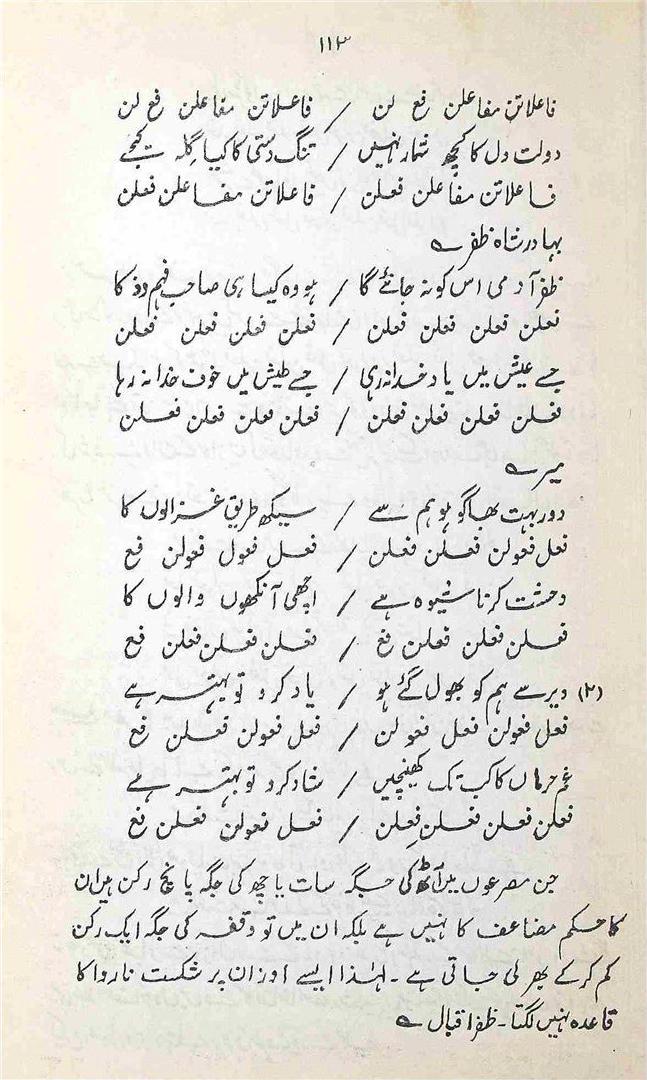 ۱۱۳
فاعلاتن مفاعلن فع لن / فاعلاتن مفاعلن فع لن
دولت دل کا کچھ شمار نہیں / تنگ دستی کا کیا گلہ کیجے
فاعلاتن مفاعلن فعلن / فاعلاتن مفاعلن فعلن
بہادر شاہ ظفر ؎
ظفر آدمی اس کو نہ جانئے گا / ہو وہ کیسا ہی صاحب فہم و ذکا
فعلن فعلن فعلن فعلن / فعلن فعلن فعلن فعلن
جسے عیش میں یاد خدا نہ رہی / جسے طیش میں خوف خدا نہ رہا
فعلن فعلن فعلن فعلن / فعلن فعلن فعلن فعلن
میر ؎
دور بہت بھاگو ہو ہم سے / سیکھ طریق غزالوں کا
فعل فعولن فعلن فعلن / فعل فعول فعولن فع
وحشت کرنا شیوہ ہے / اچھی آنکھوں والوں کا
فعلن فعلن فعلن فع / فعلن فعلن فعلن فع
(۲) دیر سے ہم کو بھول گئے ہو / یاد کرو تو بہتر ہے
فعل فعولن فعل فعولن / فعل فعولن فعلن فع
غم حرماں کا کب تک کھینچیں / شاد کرو تو بہتر ہے
فعلن فعلن فعلن فعلن / فعل فعولن فعلن فع
جن مصرعوں میں آٹھ کی جگہ سات یا چھ کی جگہ پانچ رکن ہیں ان
کا حکم مضاعف کا نہیں ہے بلکہ ان میں تو وقفہ کی جگہ ایک رکن
کم کر کے بھر لی جاتی ہے ۔ لہٰذا ایسے اوزان پر شکست ناروا کا
قاعدہ نہیں لگتا ۔ ظفر اقبال ؎